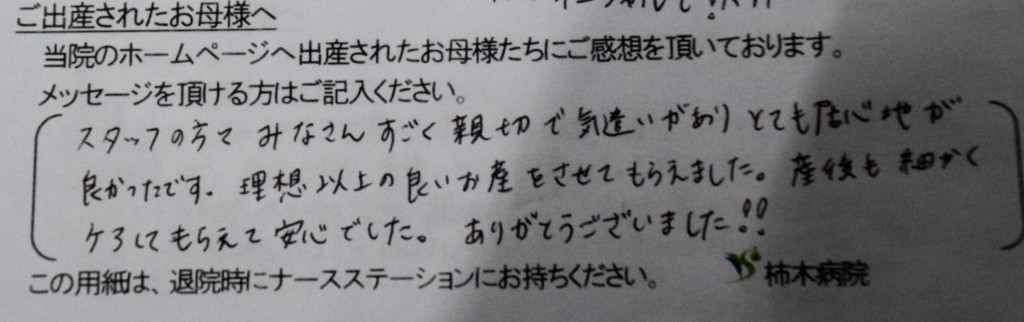 ご出産されたお母様へ
当院のホームページへ出産されたお母様たちにご感想を頂いております。
メッセージを頂ける方はご記入ください。
スタッフの方て みなさん すごく 親切で 気遣いがあり とても居心地が
良かったです。 理想以上の良いお産をさせてもらえました。 産後も 細かく
ケアしてもらえて 安心でした。 ありがとうございました!!
この用紙は、退院時にナースステーションにお持ちください。
柿木病院